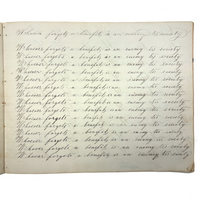 Whoever forgets a benefit is an enemy to society
Whoever forgets a benefit is an enemy to society
Whoever forgets a benefit is an enemy to society
Whoever forgets a benefit is an enemy to society
Whoever forgets a benefit is an enemy to society
Whoever forgets a benefit is an enemy to society
Whoever forgets a benefit is an enemy to society
Whoever forgets a benefit is an enemy to society
Whoever forgets a benefit is an enemy to society
Whoever forgets a benefit is an enemy to society
Whoever forgets a benefit is an enemy to society
Whoever forgets a benefit is an enemy to society
Whoever forgets a benefit is an enemy to society